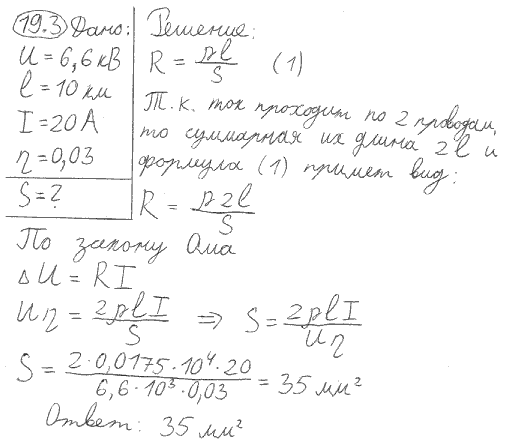 19.3 Дано:
U = 6,6 кВ
l = 10 км
I = 20 А
η = 0,03
S = ?
Решение:
R = ρl/S (1)
Т.к. ток проходит по 2 проводам,
то суммарная их длина 2l и
формула (1) примет вид:
R = ρ2l/S
По закону Ома
ΔU = RI
Uη = 2ρlI/S ⇒ S = 2ρlI/Uη
S = 2·0,0175·10⁴·20/6,6·10³·0,03 = 35 мм²
Ответ: 35 мм²